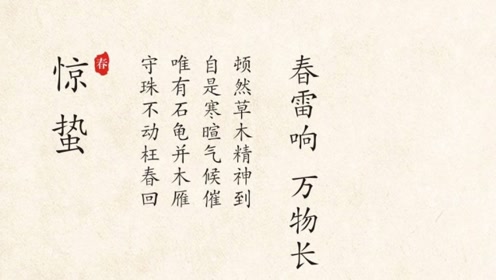 春雷响 万物长
顿然草木精神到
自是寒暄气候催
唯有石龟并木雁
守珠不动枉春回
春
惊蛰